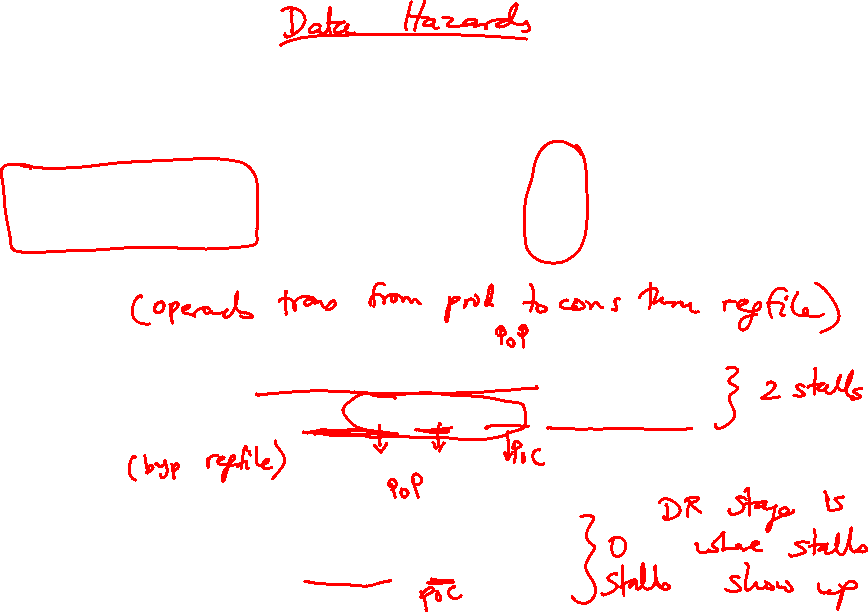 Data Hazards
(operads trans from prod to cons thru regfile)
PoP
} 2 stalls
PoC
(byp regfile)
PoP
DR stage is
0 where stalls
stalls show up
PoC